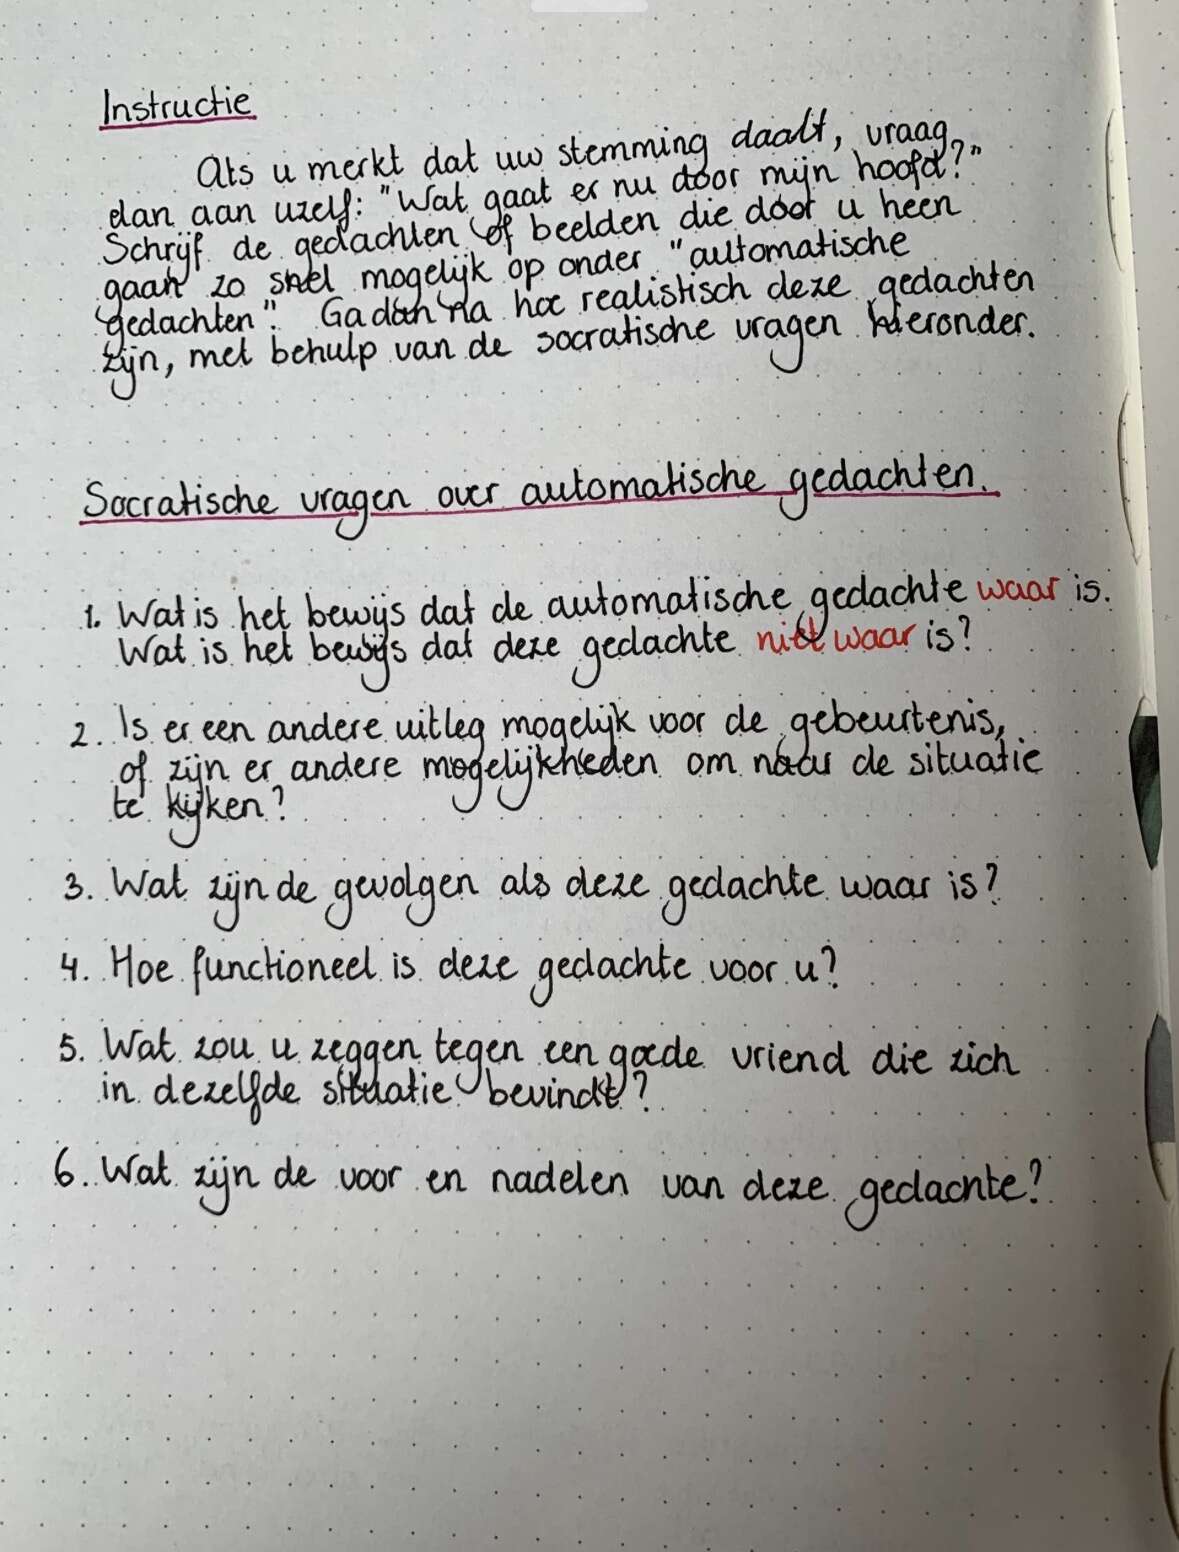 Instructie
Als u merkt dat uw stemming daalt, vraag
dan aan uzelf: "Wat gaat er nu door mijn hoofd?"
Schrijf de gedachten of beelden die door u heen
gaan zo snel mogelijk op onder "automatische
gedachten". Ga dan na hoe realistisch deze gedachten
zijn, met behulp van de socratische vragen hieronder.
Socratische vragen over automatische gedachten.
1. Wat is het bewijs dat de automatische gedachte waar is.
Wat is het bewijs dat deze gedachte niet waar is?
2. Is er een andere uitleg mogelijk voor de gebeurtenis,
of zijn er andere mogelijkheden om naar de situatie
te kijken?
3. Wat zijn de gevolgen als deze gedachte waar is?
4. Hoe functioneel is deze gedachte voor u?
5. Wat zou u zeggen tegen een goede vriend die zich
in dezelfde situatie bevindt?
6. Wat zijn de voor en nadelen van deze gedachte?